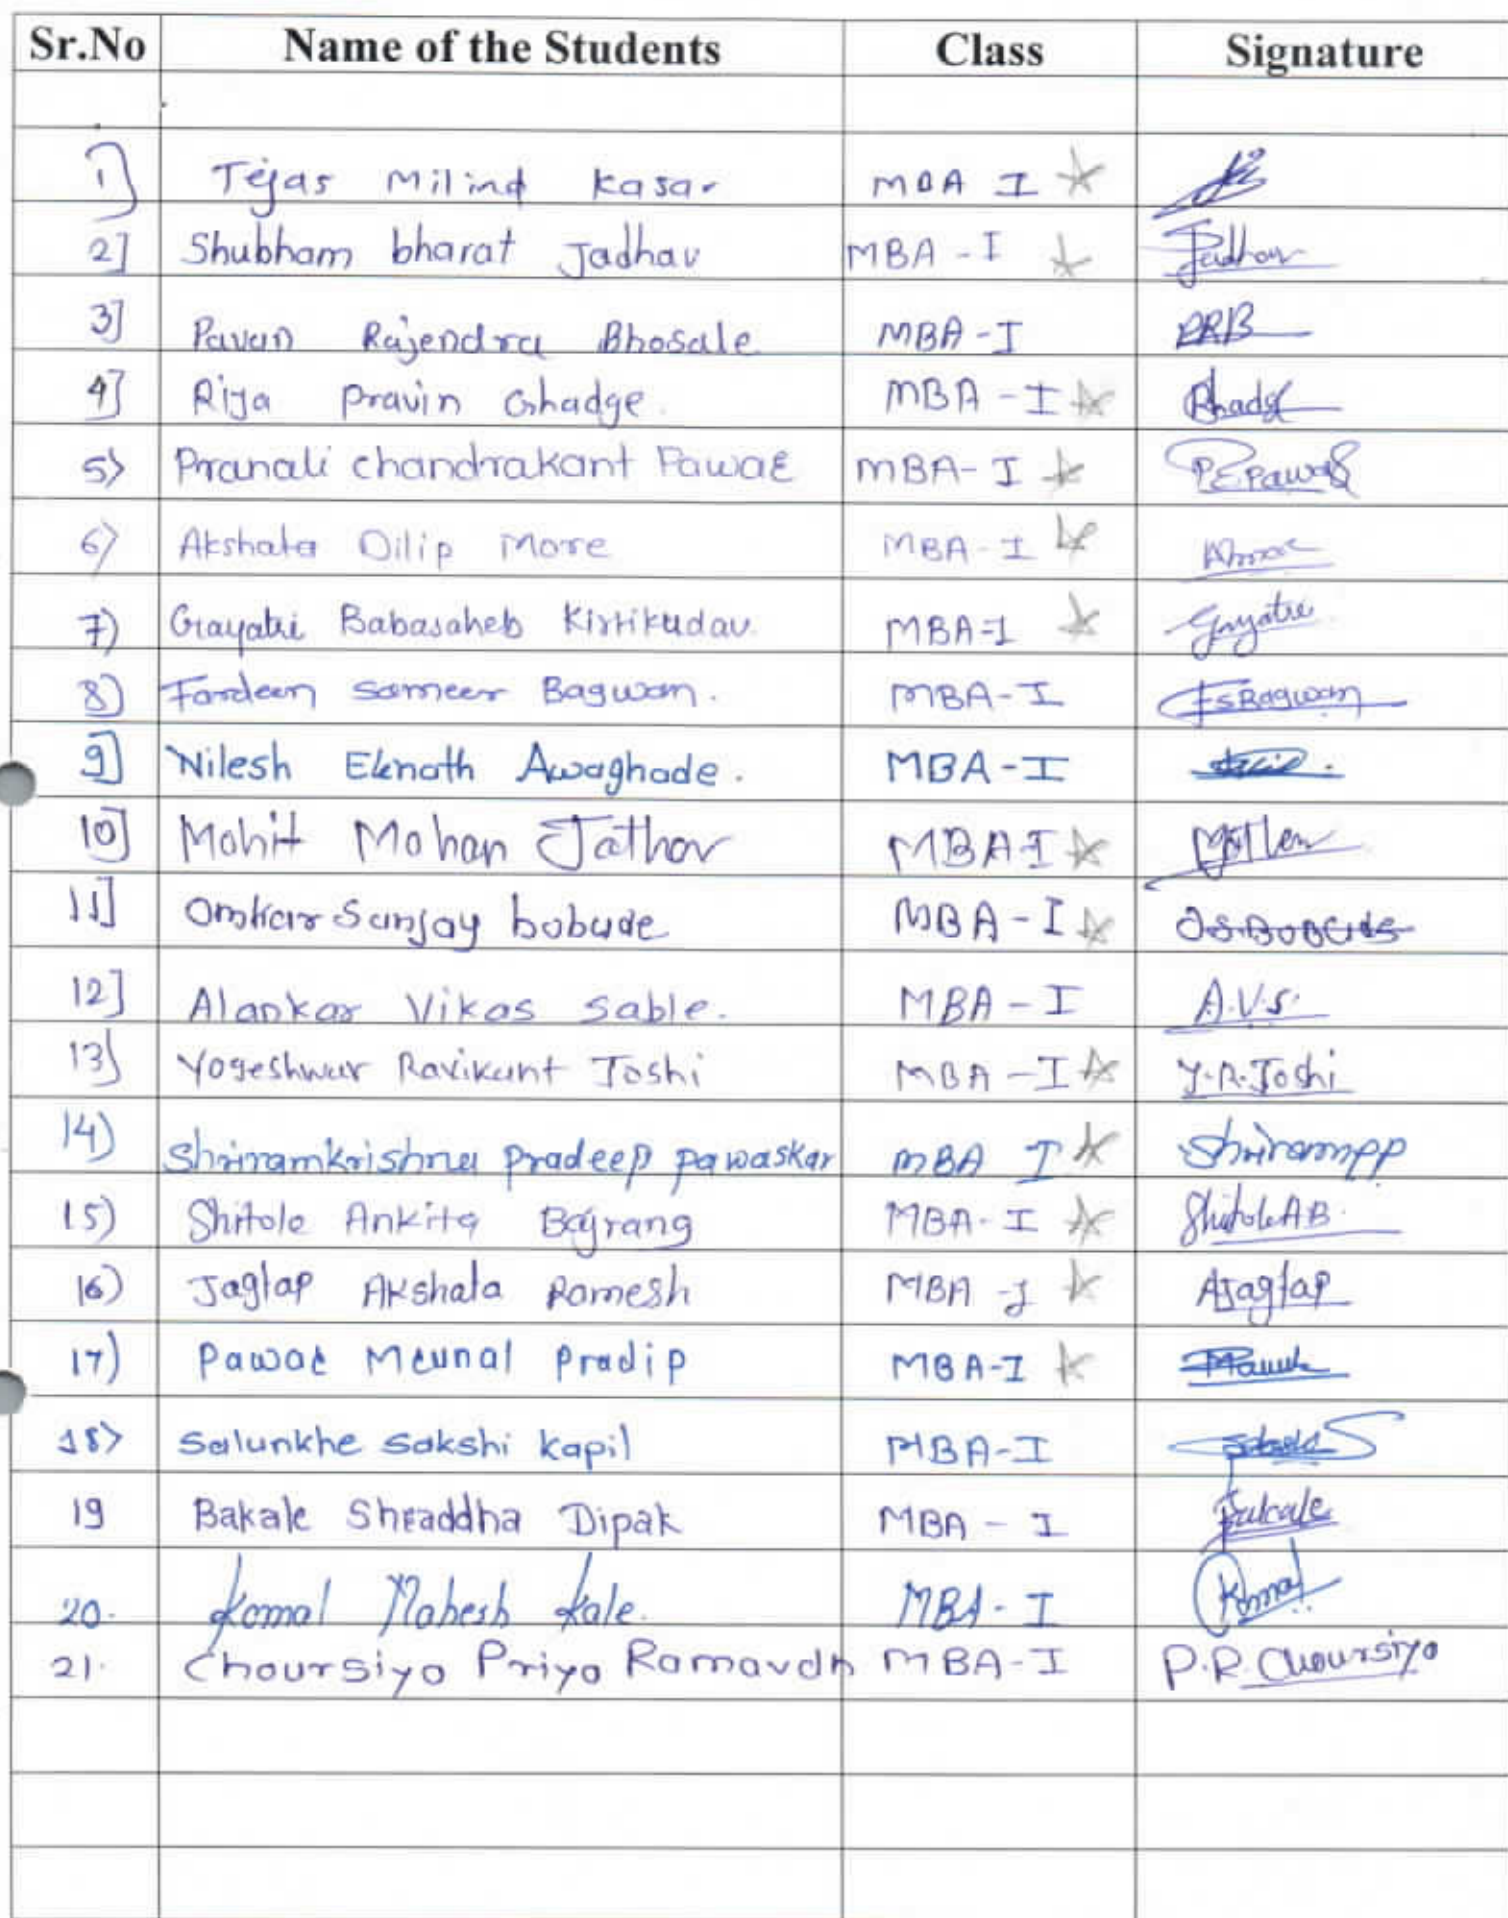 Sr.No Name of the Students Class Signature
1) Tejas Milind Kasar MBA I
2] Shubham bharat Jadhav MBA - I Jadhav
3] Pavan Rajendra Bhosale MBA - I PRB
4] Riya Pravin Ghadge. MBA - I
5) Pranali chandrakant Pawar MBA - I P.C.Pawar
6) Akshata Dilip More MBA - I
7) Gayatri Babasaheb Kirtikudav. MBA-I Gayatri
8) Fardeen Sameer Bagwan. MBA-I F S Bagwan
9] Nilesh Eknath Awaghade. MBA-I
10] Mohit Mohan Jathar MBA-I
11] Omkar Sanjay bobade MBA - I O.S.BOBADE
12] Alankar Vikas Sable. MBA - I A.V.S.
13) Yogeshwar Ravikant Joshi MBA - I Y.R.Joshi
14) Shriramkrishna Pradeep Pawaskar MBA I Shrirampp
15) Shitole Ankita Bajrang MBA - I Shitole AB.
16) Jagtap Akshata Ramesh MBA - I AJagtap
17) Pawar Mrunal Pradip MBA-I
18) Salunkhe Sakshi Kapil MBA-I
19 Bakale Shraddha Dipak MBA - I Bakale
20. Komal Mahesh Kale. MBA - I Komal
21. Choursiya Priya Ramavdh MBA-I P.R. Choursiya